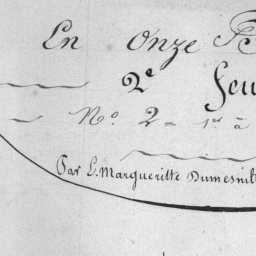 En Onze
2e
No 2 = 1er à
Par L. Margueritte Dumesnil